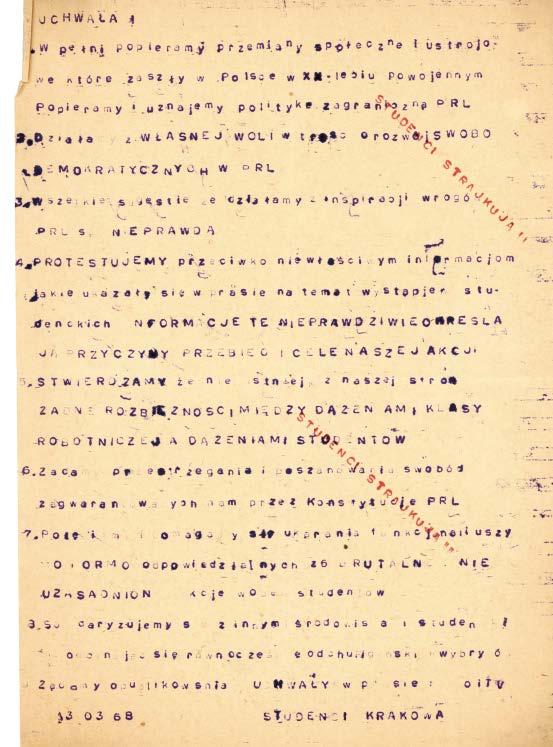 UCHWAŁA 1
W pełni popieramy przemiany społeczne i ustrojo
we które zaszły w Polsce w XX-leciu powojennym
Popieramy i uznajemy politykę zagraniczną PRL
2. Działamy z WŁASNEJ WOLI w o rozwój SWOBO
DEMOKRATYCZNYCH W PRL
3. Wszelkie sugestie że działamy z inspiracji wrogów
PRL są NIEPRAWDĄ
4. PROTESTUJEMY przeciwko niewłaściwym informacjom
jakie ukazały się w prasie na temat wystąpień stu-
denckich NFORMACJE TE NIEPRAWDZIWIE OKREŚLA
JĄ PRZYCZYNY PRZEBIEG I CELE NASZEJ AKCJI
5. STWIERDZAMY że nie istnieją z naszej stron
ŻADNE ROZBIEŻNOŚCI MIĘDZY DĄŻENIAMI KLASY
ROBOTNICZEJ A DĄŻENIAMI STUDENTÓW
6. Żądamy przestrzegania i poszanowania swobód
zagwarantowanych nam przez Konstytucję PRL
7. Potępiamy i domagamy się ukarania funkcjonariuszy
MO i ORMO odpowiedzialnych za BRUTALNE NIE
UZASADNION akcje wobec studentów
8. Solidaryzujemy się z innymi środowiskami studen
się równocześ od chuligański wybryków
Żądamy opublikowania UCHWAŁY w prasie
13 03 68 STUDENCI KRAKOWA
STUDENCI STRAJKUJĄ !!
STUDENCI STRAJKUJĄ !!